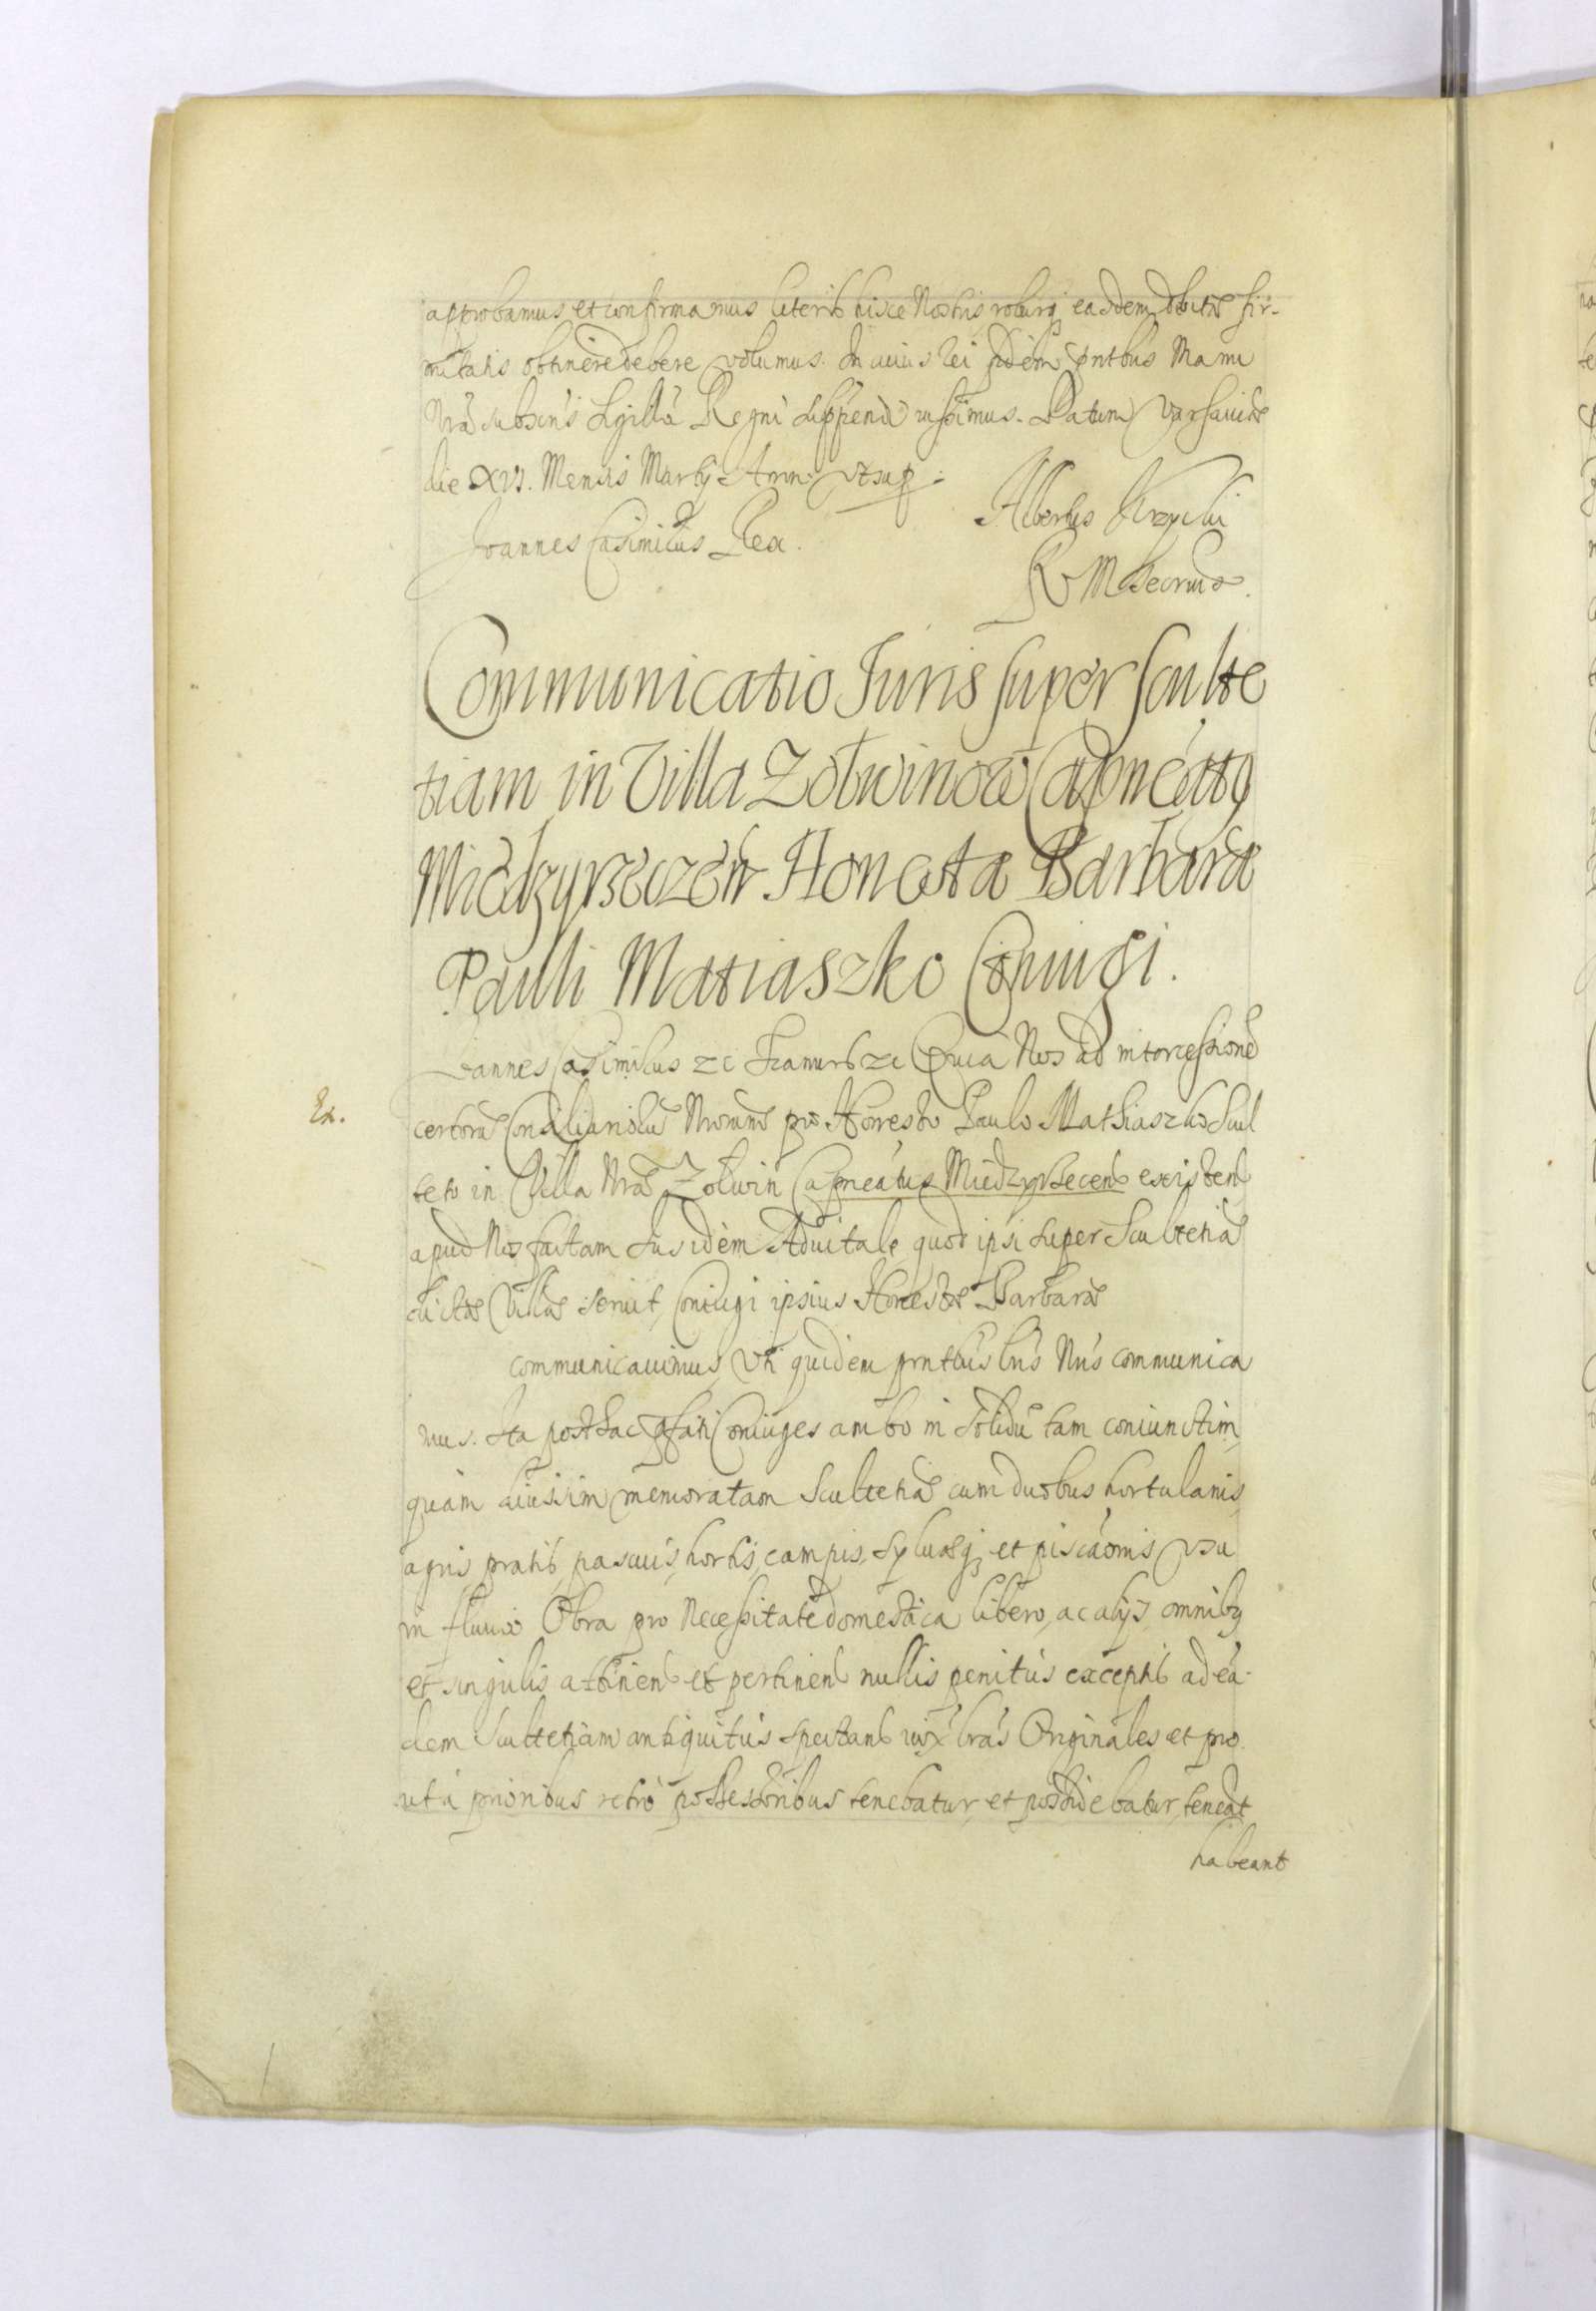 approbamus, et confirmamus literis hisce Nostris, roburq; easdem debitae fir-
mitatis obtinere debere volumus. In cuius rei fidem pntbus Manu
Nrâ subscris Sigillũ Regni suppendi iussimus. Datum Varsaviae
die XVI. Mensis Martij Anno vtsup:
Joannes Casimirus Rex.
Albertus Krzycki
R M Secrius.
Communicatio Juris super Sculte
tiam in Villa Zolwinow Capneatg
Miedzyrzeczen Honesta Barbara
Paulli Matiaszko Coniugi.
Ioannes Casimirus zc Fcamus zc Quia Nos ad intercessionẽ
Ex.
certorũ Consiliariorũ Nrorum pro Honesto Paulo Mathiaszko Scul
teto in Villa Nrã Zolwin Capneatus Miedzyrzecen existen
apud Nos factam Jus idem Aduitale quod ipsi super Scultetiã
dictae Villae seruit, Coniugi ipsius Honestae Barbarae
communicauimus, Vti quidem pntbus lris Nris communica
mus. Ita post hac pfati Coniuges ambo in solidũ tam coniunctim,
quàm diuisim memoratam Scultetiã cum duobus hortulanis,
agris pratis, pascuis, hortis, campis, syluasq; et piscaonis vsu
in fluuio Obra pro Necessitate domestica libero, ac alijs omnibg
et singulis attinen et pertinen nullis penitùs exceptis ad ea-
dem Scultetiam antiquitùs spectan iux lras Originales et pro
ut à prioribus retrò possessoribus tenebatur, et possidebatur, teneãt
habeant